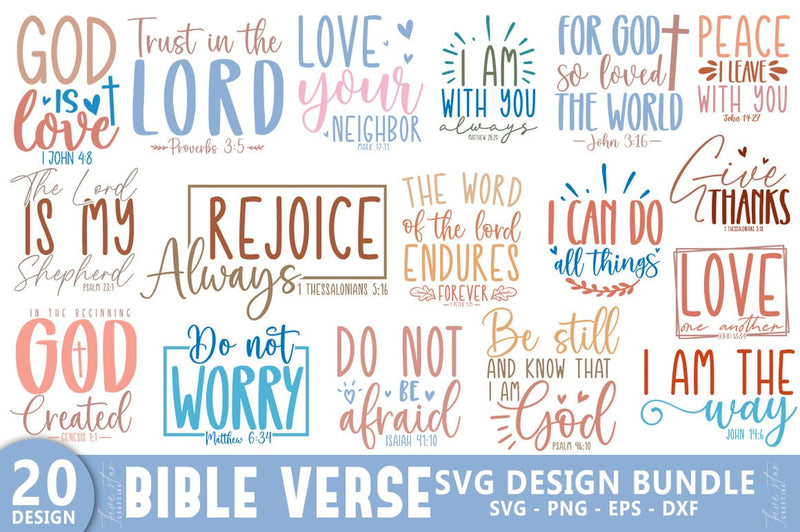 GOD
IS
love
1 JOHN 4:8
Trust in the
LORD
Proverbs 3:5
LOVE
your
NEIGHBOR
MARK
I AM
WITH YOU
always
MATTHEW 28:20
FOR GOD
so loved
THE WORLD
John 3:16
PEACE
I LEAVE
WITH YOU
John 14:27
The Lord
IS MY
Shepherd
PSALM 23:1
REJOICE
Always
1 THESSALONIANS 5:16
THE WORD
of the lord
ENDURES
FOREVER
1 PETER 1:25
I CAN DO
all things
Give
THANKS
1 THESSALONIANS 5:18
LOVE
one another
IN THE BEGINNING
GOD
Created
GENESIS 1:1
Do not
WORRY
Matthew 6:34
DO NOT
BE
afraid
ISAIAH 41:10
Be still
AND KNOW THAT
I AM
God
PSALM 46:10
I AM THE
way
JOHN 14:6
20
DESIGN
BIBLE VERSE
SVG DESIGN BUNDLE
SVG - PNG - EPS - DXF